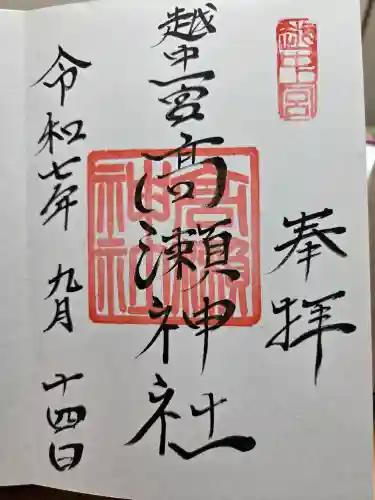 奉拝
越中一宮
越中一宮高瀬神社
高瀬神社
令和七年九月十四日